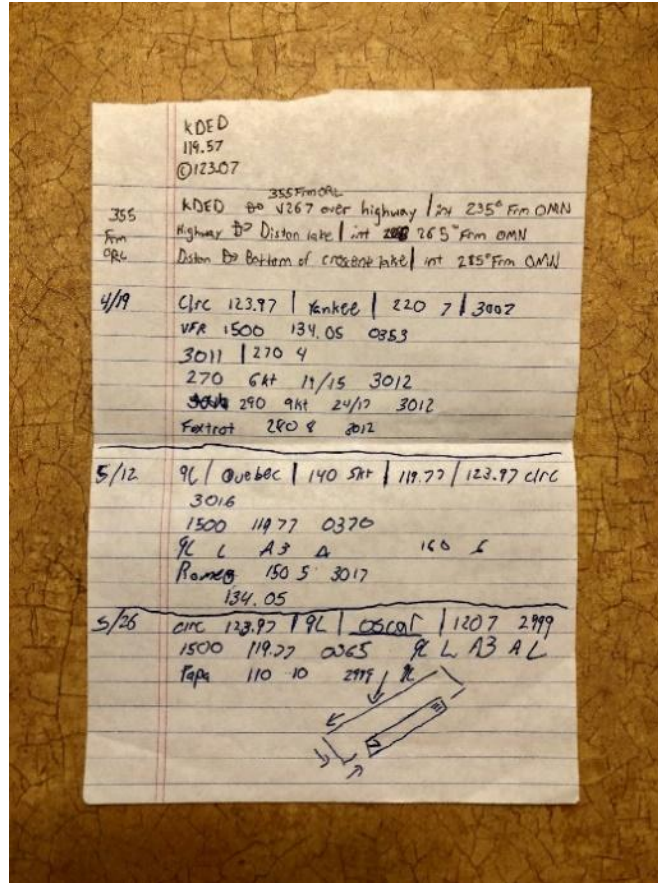 KDED
119.57
©123.07
355 Frm ORL
KDED to V267 over highway | int 235° Frm OMN
355 Frm ORL
Highway to Diston lake | int 265° Frm OMN
Diston to Bottom of crescent lake | int 285° Frm OMN
4/19 Clrc 123.97 | Yankee | 220 7 | 3007
VFR 1500 134.05 0353
3011 | 270 4
270 6kt 19/15 3012
290 9kt 24/17 3012
Foxtrot 280 8 3012
5/12 9L | Quebec | 140 5kt | 119.77 | 123.97 clrc
3016
1500 119.77 0370
9L L A3 A 160 6
Romeo 150 5 3017
134.05
5/26 clrc 123.97 | 9L | oscar | 120 7 2999
1500 119.77 0365 9L L A3 A L
Papa 110 10 2999 9L